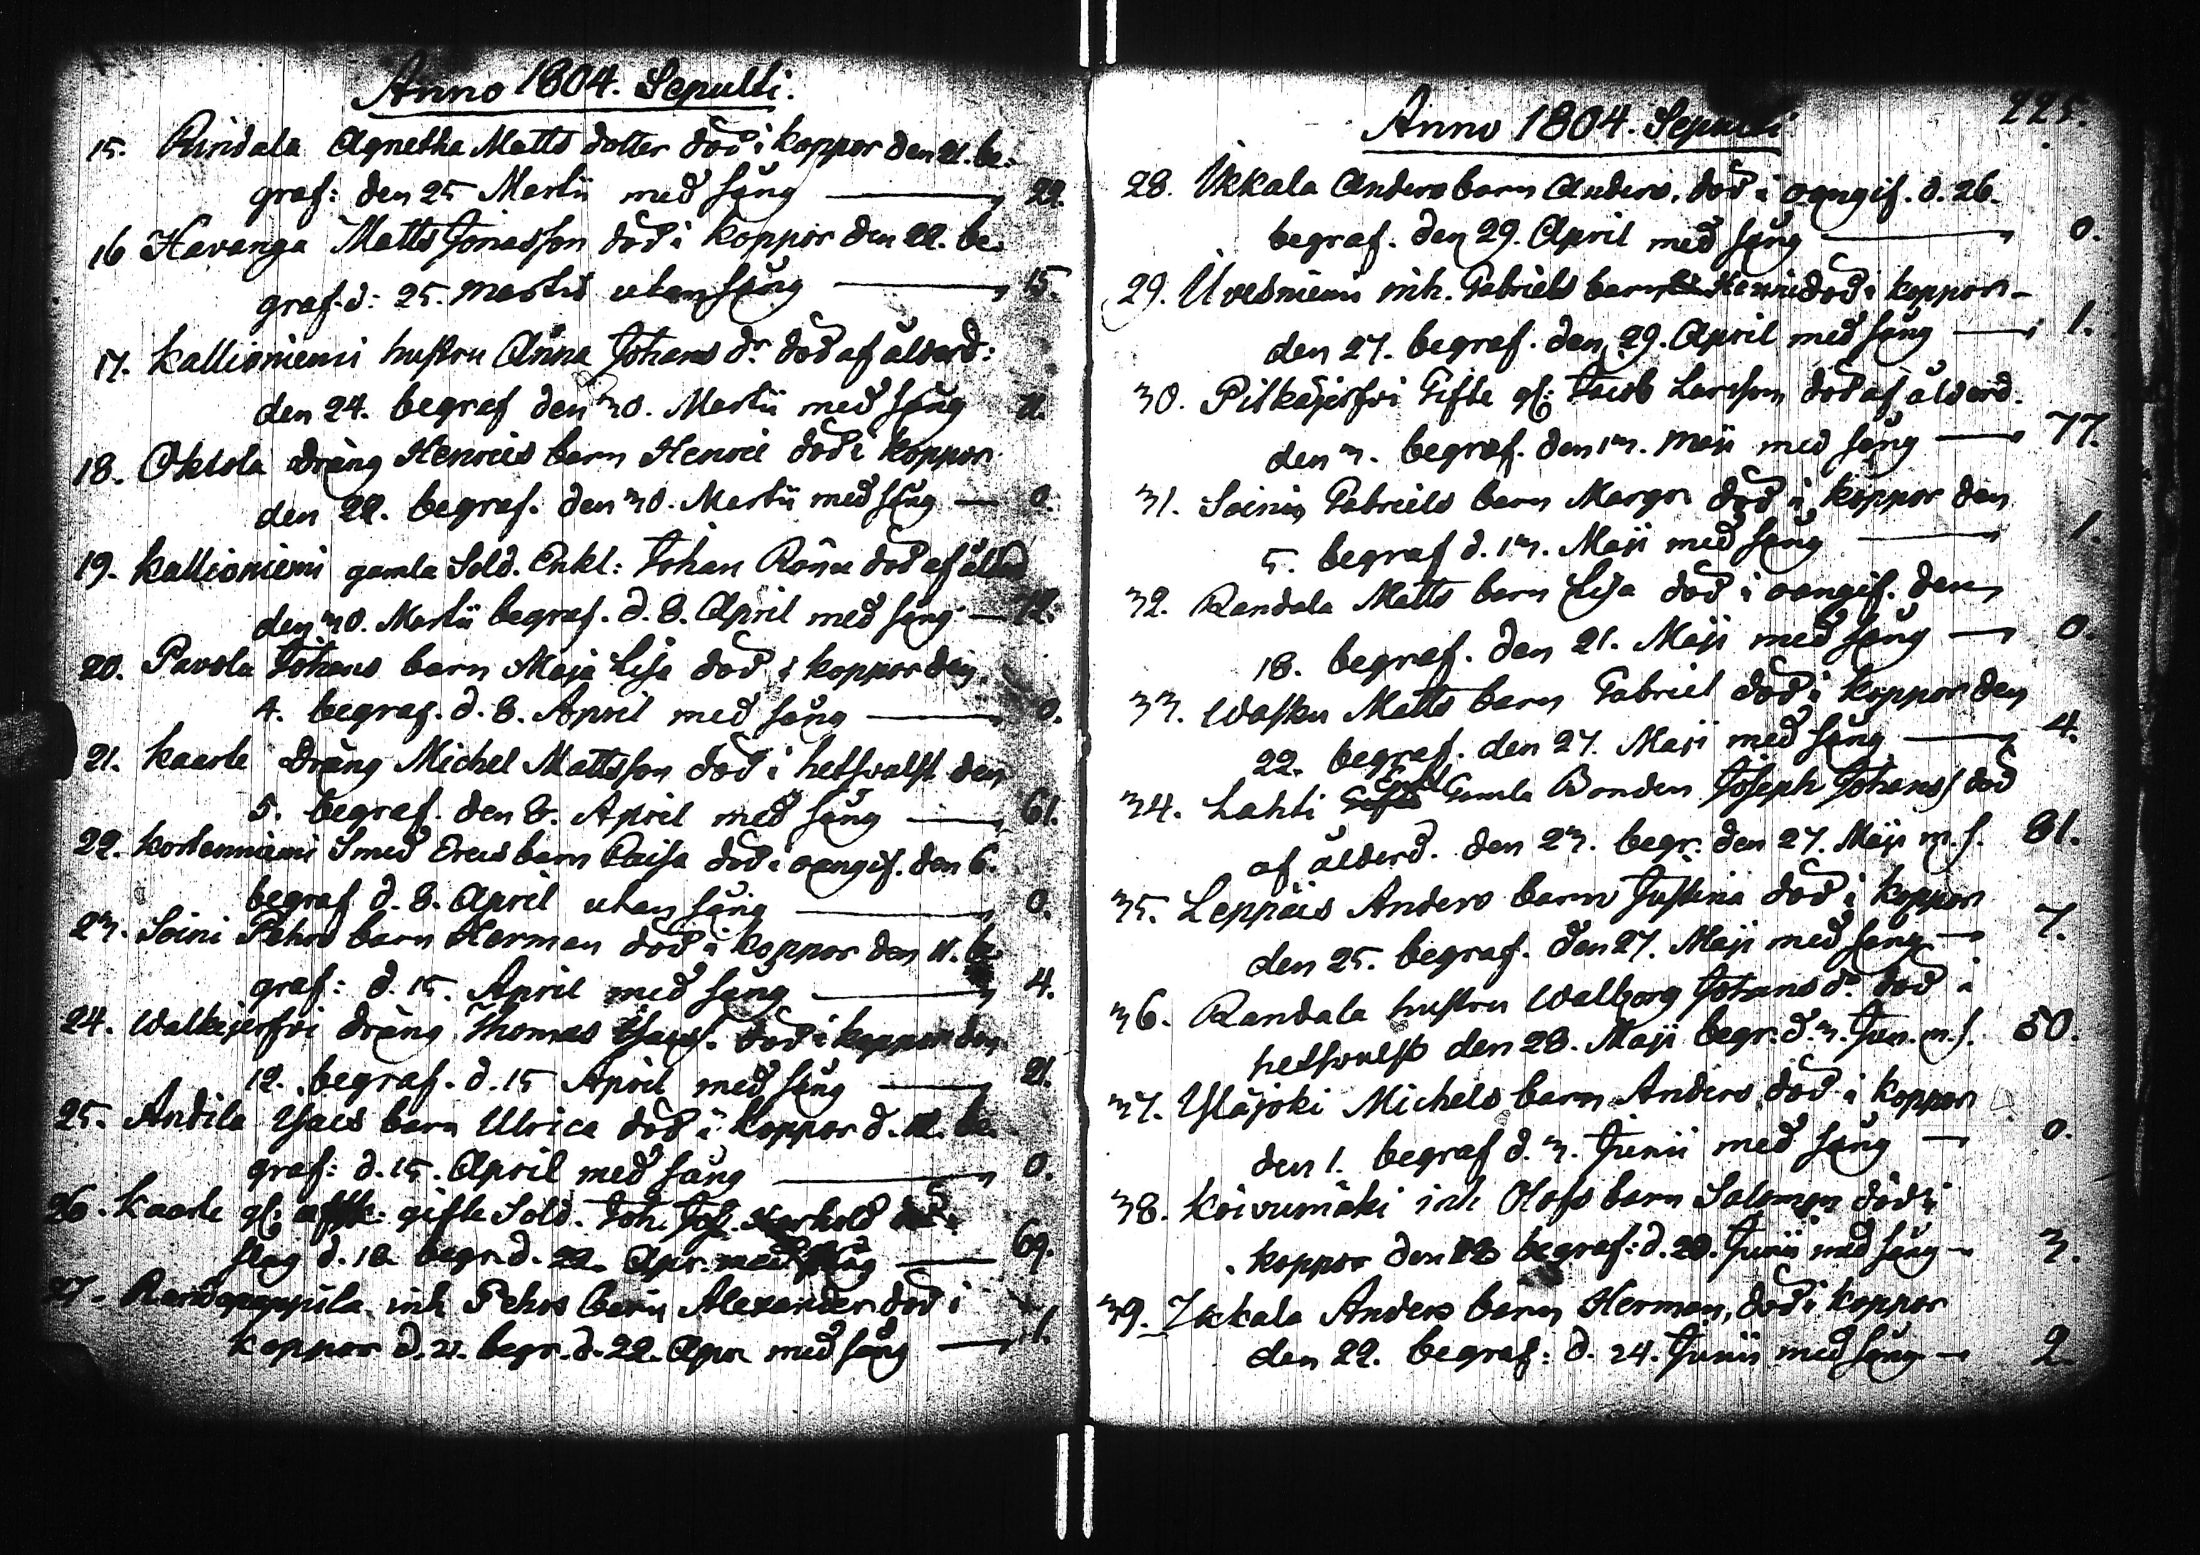 Anno 1804. Sepulti.
15. Rindala Agnetha Matts dotter död i koppor den 21. be-
graf: den 25 Martii med sång — 22.
16 Havanga Matts Jonasson död i koppor den 22. be-
graf. d: 25. Martii utan sång — 15.
17. Kallioniemi hustru Anna Johans dr död af ålderd:
den 24. begraf den 30. Martii med sång
18. Oktola dräng Henrics barn Henric död i koppor
den 28. begraf. den 30. Martii med sång — 0.
19. Kallioniemi gamla Sold. Enkl: Johan Rönn död af ålderd
den 30. Martii begraf. d. 8. April med sång — 72.
20. Pavola Johans barn Maja Lisa död i koppor den
4. begraf. d. 8. April med sång — 0.
21. Kaarle dräng Michel Mattsson död i hetsvulst den
5. begraf. den 8. April med sång — 61.
22. Kortenniemi Smed Erics barn Caisa död i oangif. den 6.
begraf d. 8. April utan sång — 0.
23. Soini Pehrs barn Herman död i koppor den 11. be-
graf: d. 15. April med sång — 4.
24. Walkejerfvi dräng Thomas Isacs. död i koppor den
12. begraf. d. 15 April med sång — 21.
25. Andila Isacs barn Ulrica död i koppor d. 12. be-
graf: d. 15. April med sång — 0.
26. Kaarle gifte Sold. Joh. Jos. död i
slag d. 18. begr. d. 22. Apr. med sång — 69.
27. inh Pehrs barn Alexander död i
koppor d. 21. begr. d. 22. Apr med sång — 1.
225.
Anno 1804. Sepulti
28. Ikkala Anders barn Anders, död i oangif. d. 26.
begraf. den 29. April med sång — 0.
29. Uvesniemi inh. Gabriels barn Henric död i koppor
den 27. begraf. den 29. April med sång — 1.
30. Pitkäjerfvi Gifte gl: Jacob Larsson död af ålderd.
den 3. begraf. den 13. Maji med sång — 77.
31. Soini Gabriels barn Margr. död i koppor den
5. begraf d. 13. Maji med sång — 1.
32. Randala Matts barn Lisa död i oangif. den
18. begraf. den 21. Maji med sång — 0.
33. Wasku Matts barn Gabriel död i koppor den
22. begraf. den 27. Maji med sång — 4.
34. Lahti Enkl Gamla Bonden Joseph Johans/ död
af ålderd. den 23. begr: den 27. Maji m. s. 81.
35. Leppäis Anders barn Justina död i koppor
den 25. begraf. den 27. Maji med sång — 7.
36. Randala hustru Walborg Johans dr. död i
hetsvulst den 28. Maji begr: d. 3. Jun. m. s. 50.
37. Yläjoki Michels barn Anders död i koppor
den 1. begraf d. 3. Junii med sång — 0.
38. Koivumäki inh Olofs barn Salomon död i
koppor den 18 begraf: d. 20. Junii med sång — 3.
39. Ikkala Anders barn Herman, död i koppor
den 22. begraf: d. 24. Junii med sång — 2.